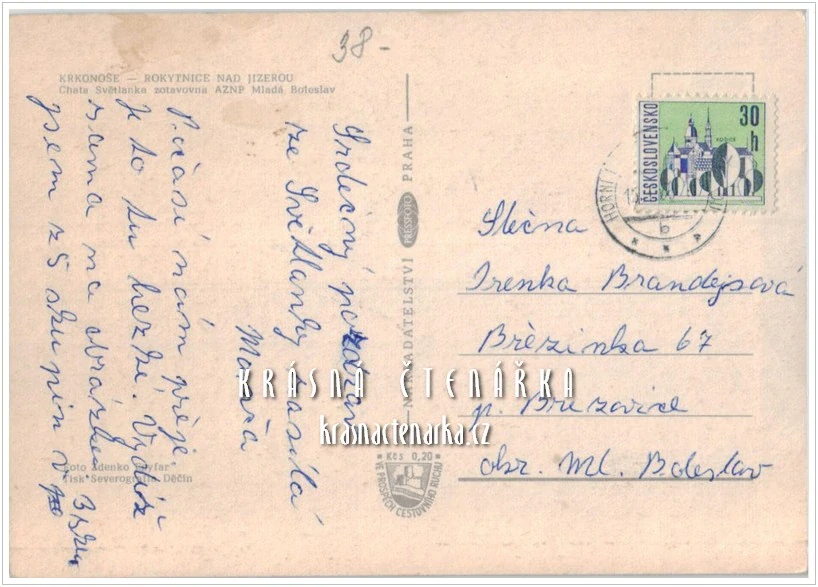 38-
KRKONOŠE — ROKYTNICE NAD JIZEROU
Chata Světlanka zotavovna AZNP Mladá Boleslav
Srdečný pozdrav
ze Světlanky zasílá
Počasí nám přeje.
Je to tu hezké.
na obrázku.
jsem z 5 skupin v
Foto Zdenko Feyfar
Tisk Severografia Děčín
NAKLADATELSTVÍ PRESSFOTO PRAHA
Kčs 0,20
VE PROSPĚCH CESTOVNÍHO RUCHU
ČESKOSLOVENSKO
30 h
HORNÍ
b
Slečna
Irenka Brandejsová
Březinka 67
p. Březovice
okr. Ml. Boleslav
KRÁSNÁ ČTENÁŘKA
krasnactenarka.cz